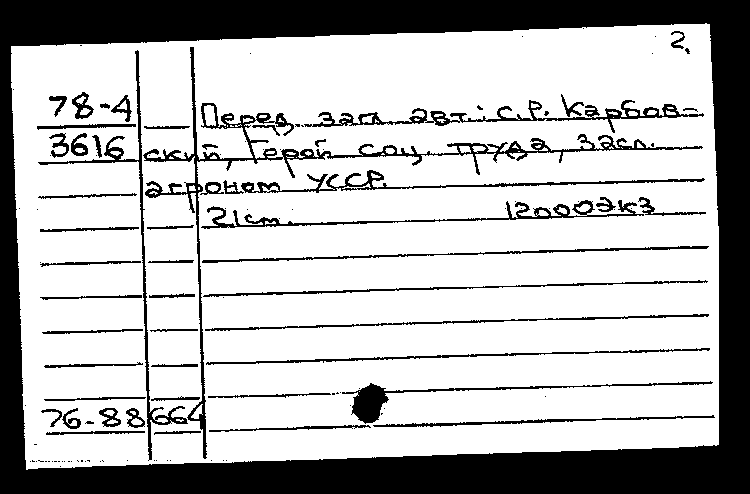 2.
78-4 Перед загл. авт.: С.Р. Карбов-
3616 ский, Герой соц. труда, засл.
агроном УССР.
21см. 12000экз
76-88 664